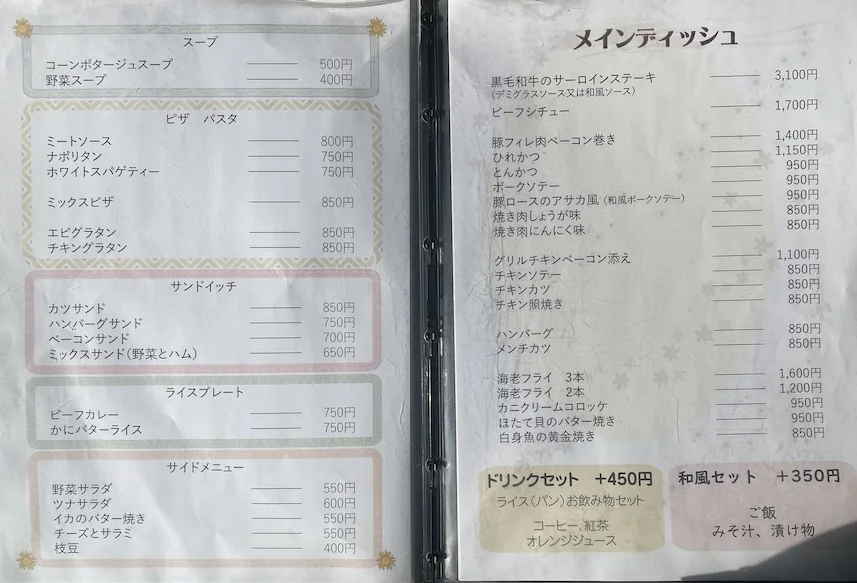 スープ
コーンポタージュスープ 500円
野菜スープ 400円
ピザ パスタ
ミートソース 800円
ナポリタン 750円
ホワイトスパゲティー 750円
ミックスピザ 850円
エビグラタン 850円
チキングラタン 850円
サンドイッチ
カツサンド 850円
ハンバーグサンド 750円
ベーコンサンド 700円
ミックスサンド(野菜とハム) 650円
ライスプレート
ビーフカレー 750円
かにバターライス 750円
サイドメニュー
野菜サラダ 550円
ツナサラダ 600円
イカのバター焼き 550円
チーズとサラミ 550円
枝豆 400円
メインディッシュ
黒毛和牛のサーロインステーキ 3,100円
(デミグラスソース又は和風ソース)
ビーフシチュー 1,700円
豚フィレ肉ベーコン巻き 1,400円
ひれかつ 1,150円
とんかつ 950円
ポークソテー 950円
豚ロースのアサカ風(和風ポークソテー) 950円
焼き肉しょうが味 850円
焼き肉にんにく味 850円
グリルチキンベーコン添え 1,100円
チキンソテー 850円
チキンカツ 850円
チキン照焼き 850円
ハンバーグ 850円
メンチカツ 850円
海老フライ 3本 1,600円
海老フライ 2本 1,200円
カニクリームコロッケ 950円
ほたて貝のバター焼き 950円
白身魚の黄金焼き 850円
ドリンクセット +450円
ライス(パン)お飲み物セット
コーヒー、紅茶
オレンジジュース
和風セット +350円
ご飯
みそ汁、漬け物